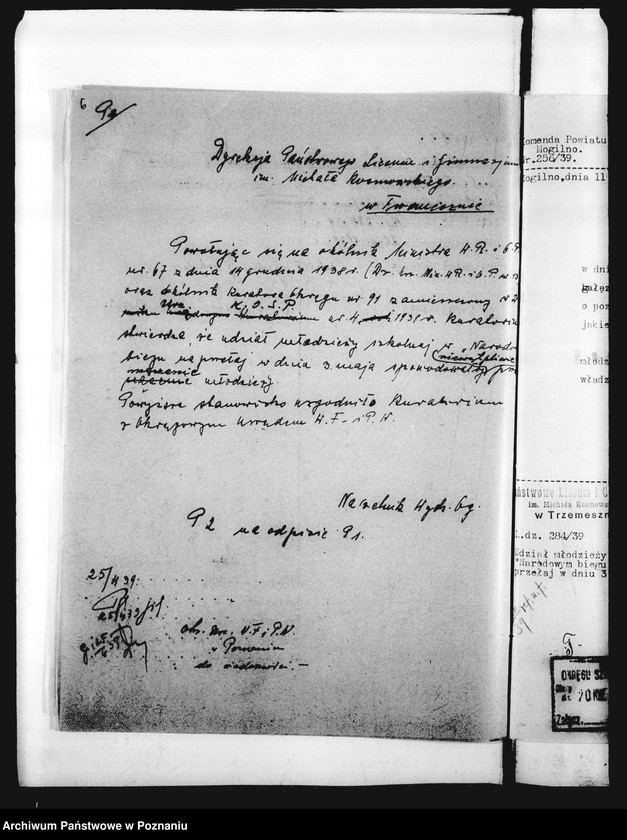 6
Dyrekcja Państwowego Liceum i Gimnazjum
im. Michała Kosmowskiego
w Trzemesznie
Powołując się na okólnik Ministra W.R. i O.P.
nr. 67 z dnia 14 grudnia 1938 r. (Dz. Urz. Min. W.R. i O.P. nr
oraz okólnik Kuratora Okręgu nr 91 zamieszczony w
Urz. K.O.S.P.
nr 4, 1939 r. Kuratorium
stwierdza, że udział młodzieży szkolnej w "Narod
biegu na przełaj w dniu 3. maja spowodowałby niewątpliwie
zmęczenie młodzieży.
Powyższe stanowisko uzgodniło Kuratorium
z Okręgowym Urzędem W.F. i P.W.
Naczelnik Wydz. Og.
P 2 na odpisie P 1.
25/4 39.
Okr. Urz. W.F. i P.W.
w Poznaniu
do wiadomości. –
Komenda Powiatu
Mogilno.
Nr.256/39.
Mogilno,dnia 11
w dni
gałęz
o poz
jakie
młodz
władz
Państwowe Liceum i G
im. Michała Kosmows
w Trzemeszn
L.dz. 284/39
Udział młodzieży
"Narodowym biegu
przełaj w dniu 3
OKRĘGU SZ
20 KWI
Załącz.
Archiwum Państwowe w Poznaniu